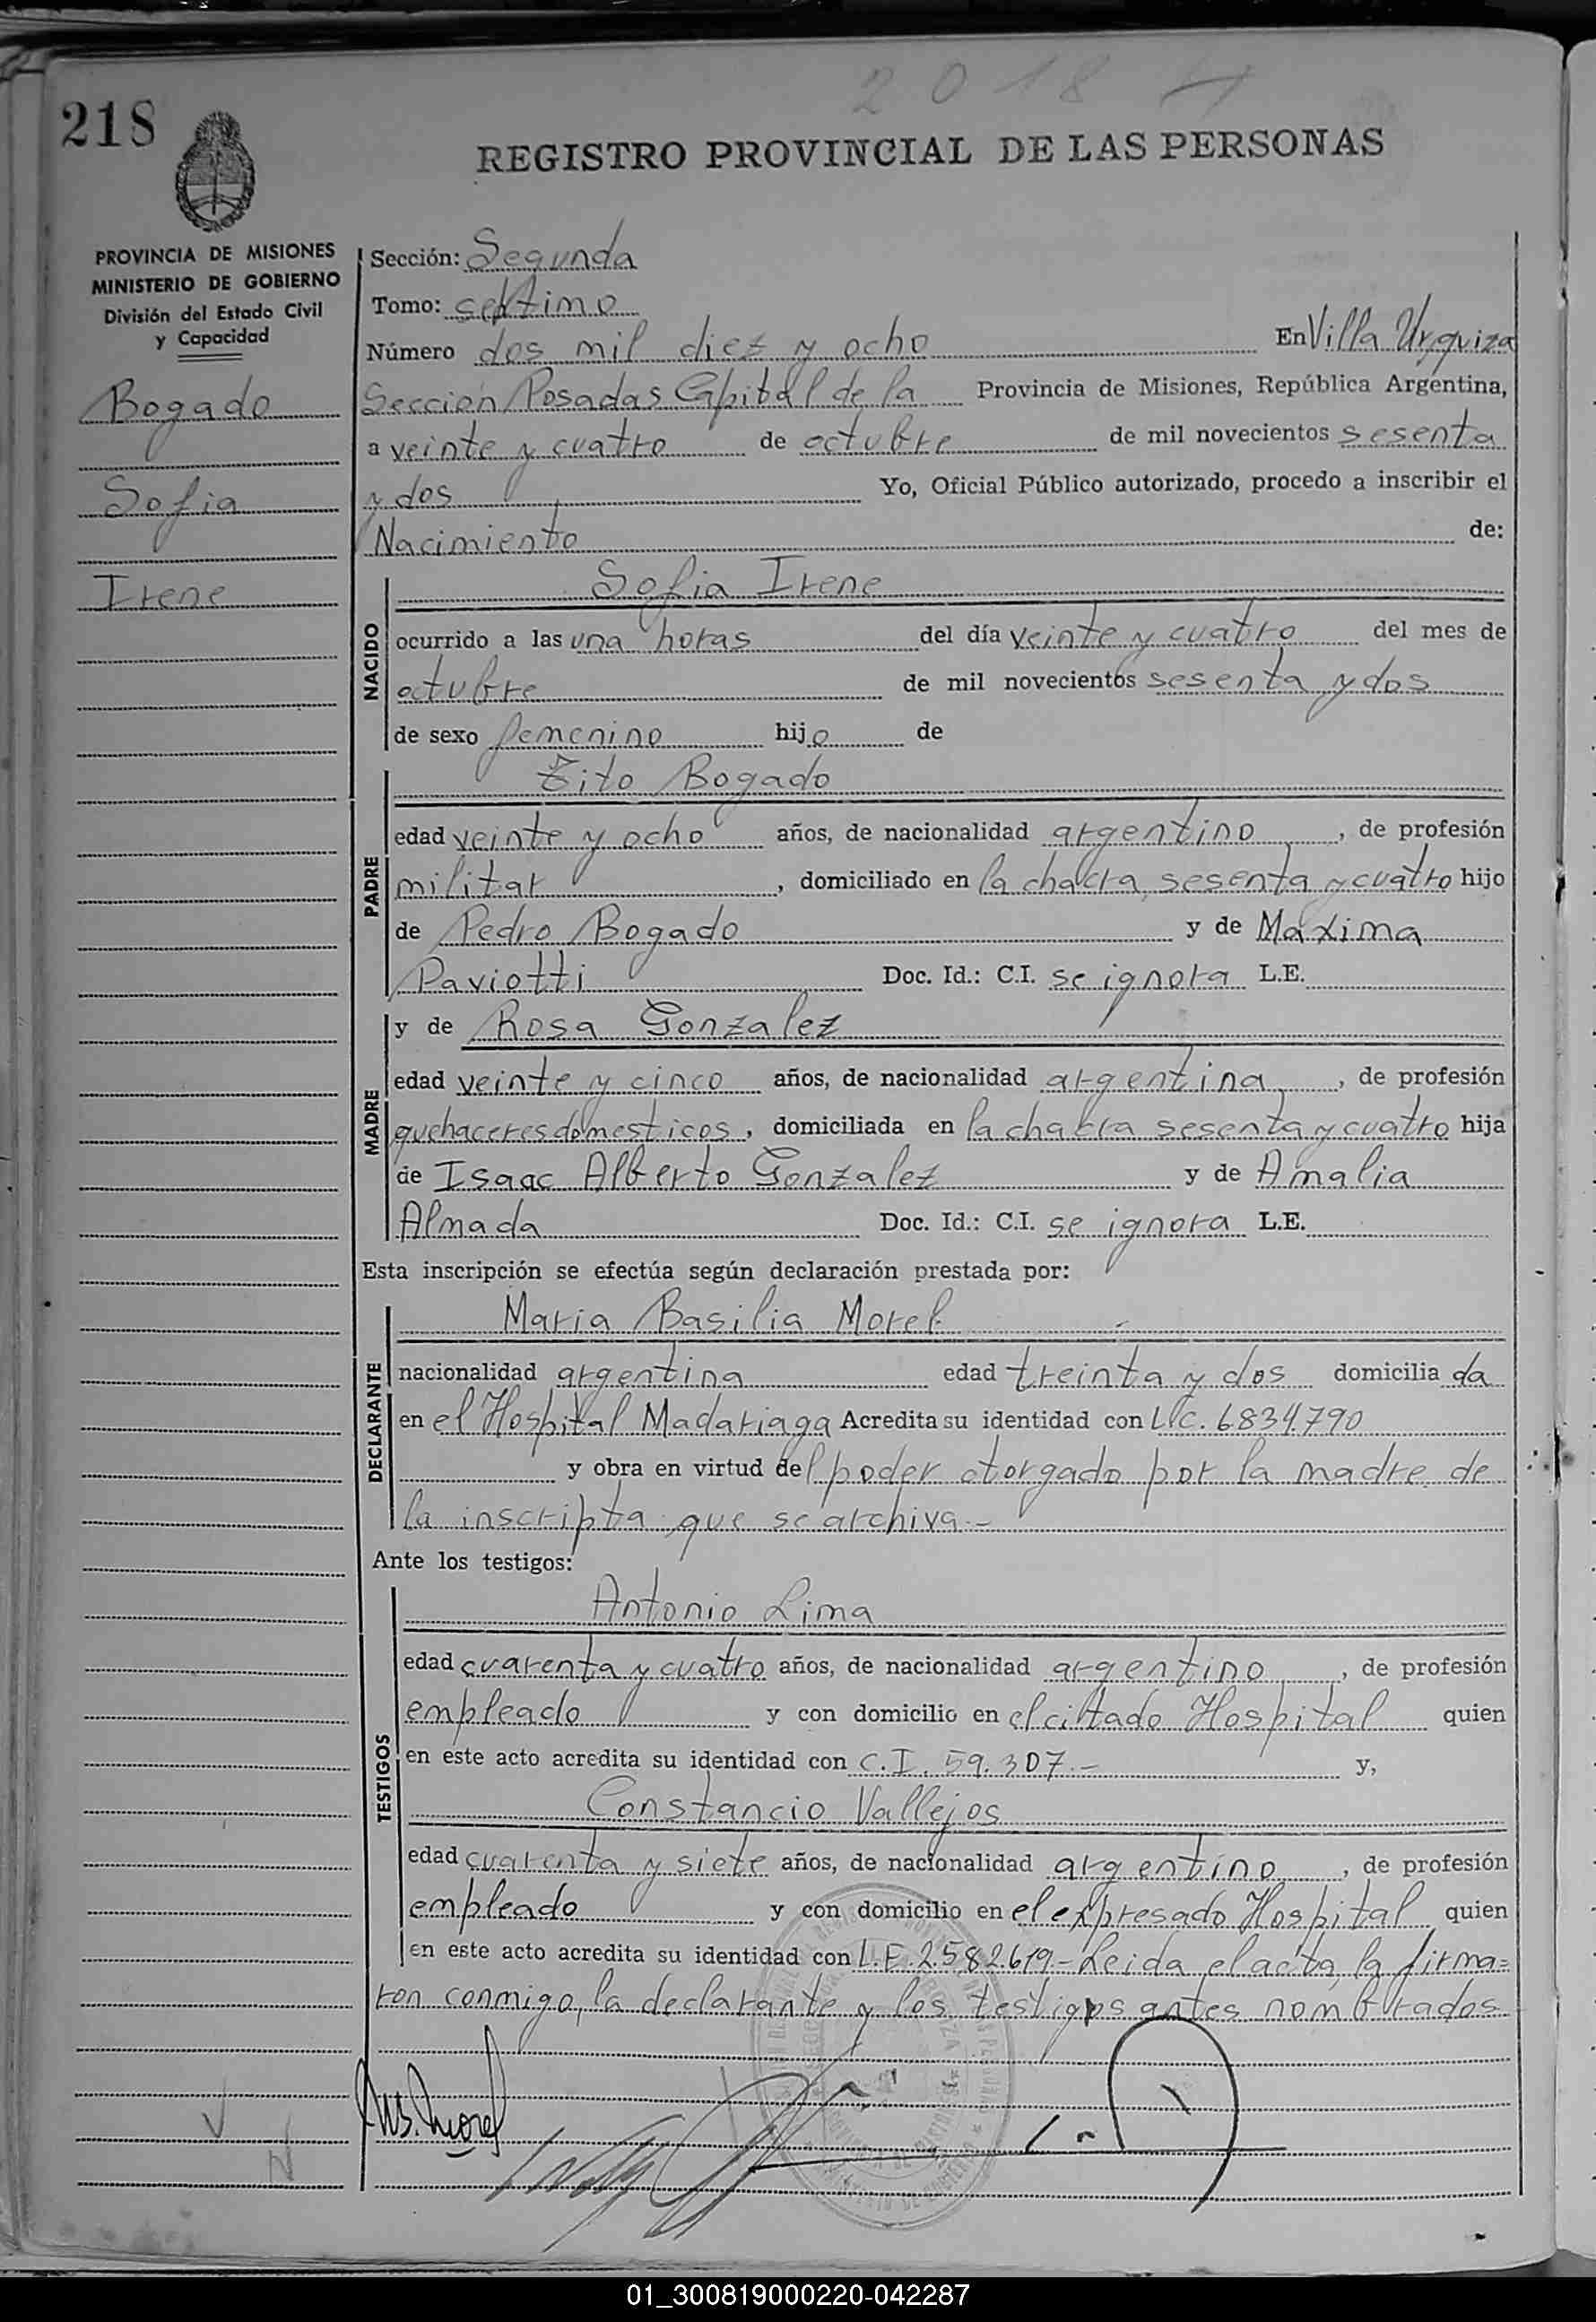 2018
218
REGISTRO PROVINCIAL DE LAS PERSONAS
PROVINCIA DE MISIONES
MINISTERIO DE GOBIERNO
División del Estado Civil
y Capacidad
Bogado
Sofia
Irene
Sección: Segunda
Tomo: septimo
Número dos mil diez y ocho En Villa Urquiza
Sección Posadas Capital de la Provincia de Misiones, República Argentina,
a veinte y cuatro de octubre de mil novecientos sesenta
y dos Yo, Oficial Público autorizado, procedo a inscribir el
Nacimiento de:
NACIDO
Sofia Irene
ocurrido a las una horas del día veinte y cuatro del mes de
octubre de mil novecientos sesenta y dos
de sexo femenino hijo de
PADRE
Tito Bogado
edad veinte y ocho años, de nacionalidad argentino, de profesión
militar, domiciliado en la chacra sesenta y cuatro hijo
de Pedro Bogado y de Máxima
Paviotti Doc. Id.: C.I. se ignora L.E.
MADRE
y de Rosa Gonzalez
edad veinte y cinco años, de nacionalidad argentina, de profesión
quehaceres domesticos, domiciliada en la chacra sesenta y cuatro hija
de Isaac Alberto Gonzalez y de Amalia
Almada Doc. Id.: C.I. se ignora L.E.
Esta inscripción se efectúa según declaración prestada por:
DECLARANTE
Maria Basilia Morel
nacionalidad argentina edad treinta y dos domicilia da
en el Hospital Madariaga Acredita su identidad con L.C. 6834.790
y obra en virtud del poder otorgado por la madre de
la inscripta que se archiva.-
Ante los testigos:
TESTIGOS
Antonio Lima
edad cuarenta y cuatro años, de nacionalidad argentino, de profesión
empleado y con domicilio en el citado Hospital quien
en este acto acredita su identidad con C.I. 59.307.- y,
Constancio Vallejos
edad cuarenta y siete años, de nacionalidad argentino, de profesión
empleado y con domicilio en el expresado Hospital quien
en este acto acredita su identidad con L.E. 2.582.619.- Leida el acta, la firma=
ron conmigo, la declarante y los testigos antes nombrados
M.B. Morel
01_300819000220-042287